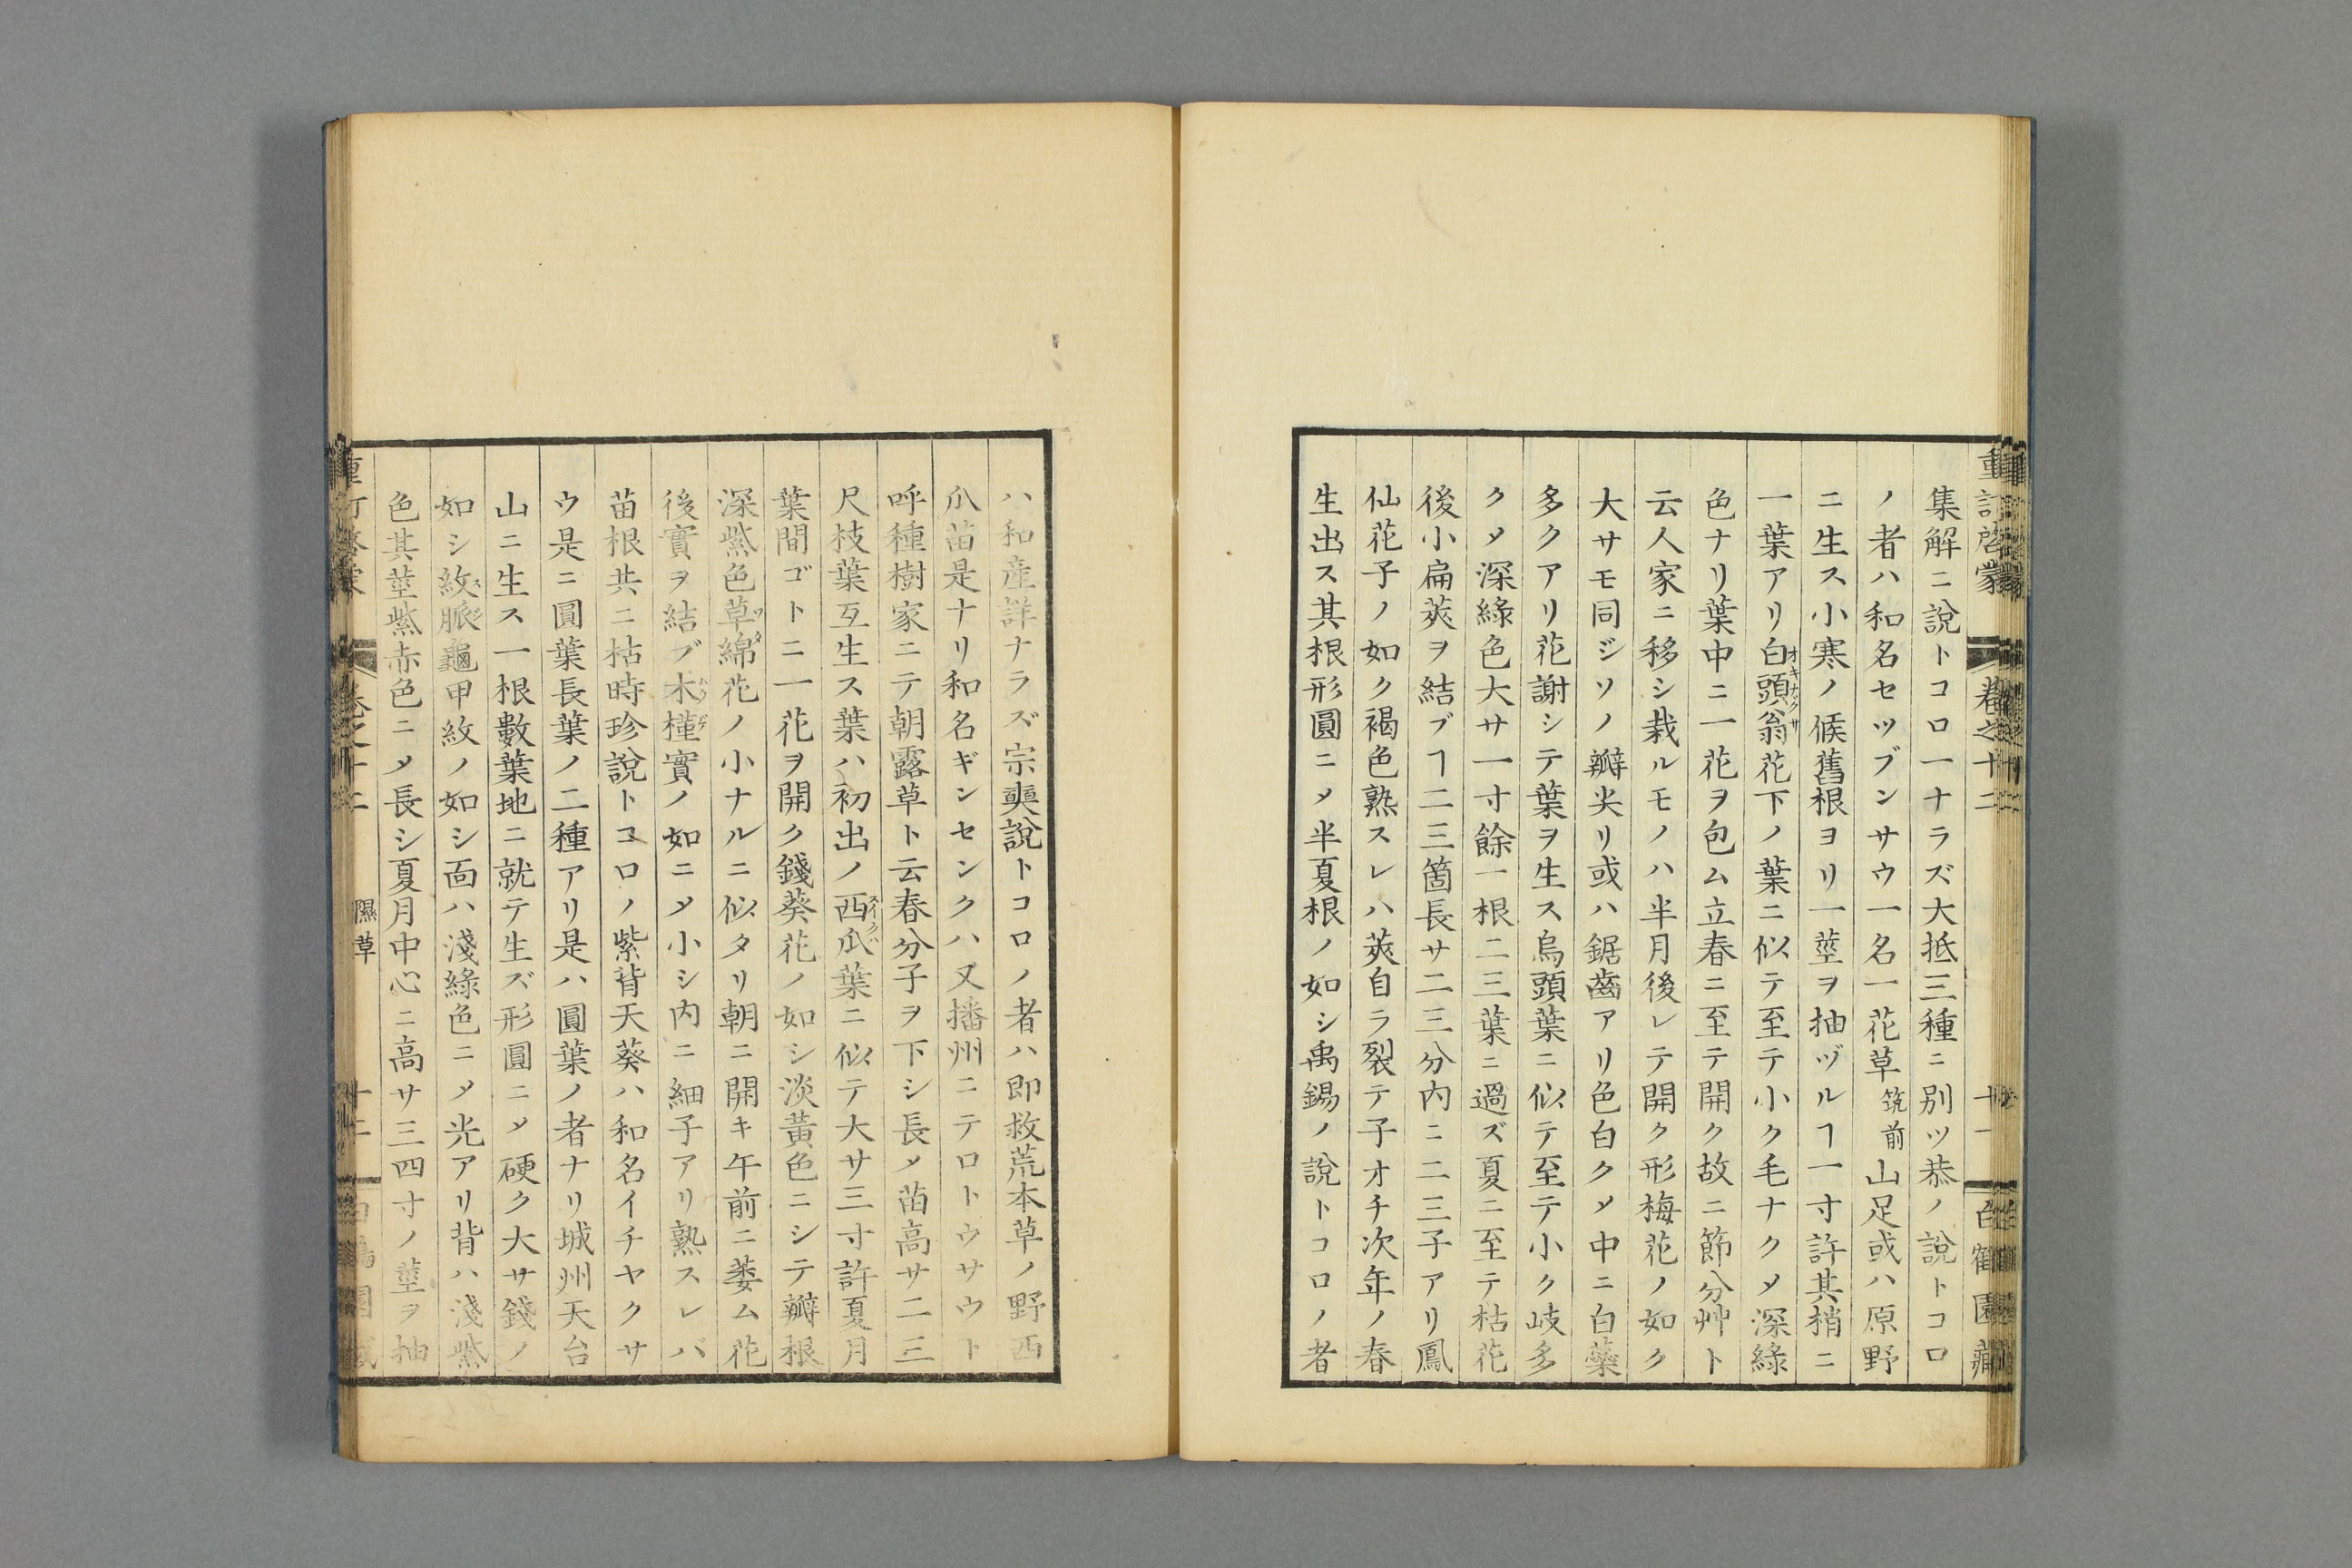 重訂啓蒙 卷之十二 十一 白鶴園藏
集解ニ說トコロ一ナラズ大抵三種ニ別ツ恭ノ說トコロ
ノ者ハ和名セツブンサウ一名一花草筑前山足或ハ原野
ニ生ス小寒ノ候舊根ヨリ一莖ヲ抽ヅルヿ一寸許其梢ニ
一葉アリ白頭翁オキナクサ花下ノ葉ニ似テ至テ小ク毛ナクメ深綠
色ナリ葉中ニ一花ヲ包ム立春ニ至テ開ク故ニ節分艸ト
云人家ニ移シ栽ルモノハ半月後レテ開ク形梅花ノ如ク
大サモ同ジソノ瓣尖リ或ハ鋸齒アリ色白クメ中ニ白蘂
多クアリ花謝シテ葉ヲ生ス烏頭葉ニ似テ至テ小ク岐多
クメ深綠色大サ一寸餘一根二三葉ニ過ズ夏ニ至テ枯花
後小扁莢ヲ結ブヿ二三箇長サ二三分內ニ二三子アリ鳳
仙花子ノ如ク褐色熟スレハ莢自ラ裂テ子オチ次年ノ春
生出ス其根形圓ニメ半夏根ノ如シ禹錫ノ說トコロノ者
ハ和産詳ナラズ宗奭說トコロノ者ハ卽救荒本草ノ野西
瓜苗是ナリ和名ギンセンクハ又播州ニテロトウサウト
呼種樹家ニテ朝露草ト云春分子ヲ下シ長メ苗高サ二三
尺枝葉互生ス葉ハ初出ノ西瓜スイクハ葉ニ似テ大サ三寸許夏月
葉間ゴトニ一花ヲ開ク錢葵花ノ如シ淡黃色ニシテ瓣根
深紫色草綿ワタ花ノ小ナルニ似タリ朝ニ開キ午前ニ萎ム花
後實ヲ結ブ木槿ムクゲ實ノ如ニメ小シ內ニ細子アリ熟スレバ
苗根共ニ枯時珍說トコロノ紫背天葵ハ和名イチヤクサ
ウ是ニ圓葉長葉ノ二種アリ是ハ圓葉ノ者ナリ城州天台
山ニ生ス一根數葉地ニ就テ生ズ形圓ニメ硬ク大サ錢ノ
如シ紋脈スジ龜甲紋ノ如シ面ハ淺綠色ニメ光アリ背ハ淺紫
色其莖紫赤色ニメ長シ夏月中心ニ高サ三四寸ノ莖ヲ抽
卷之十二 隰草 十二